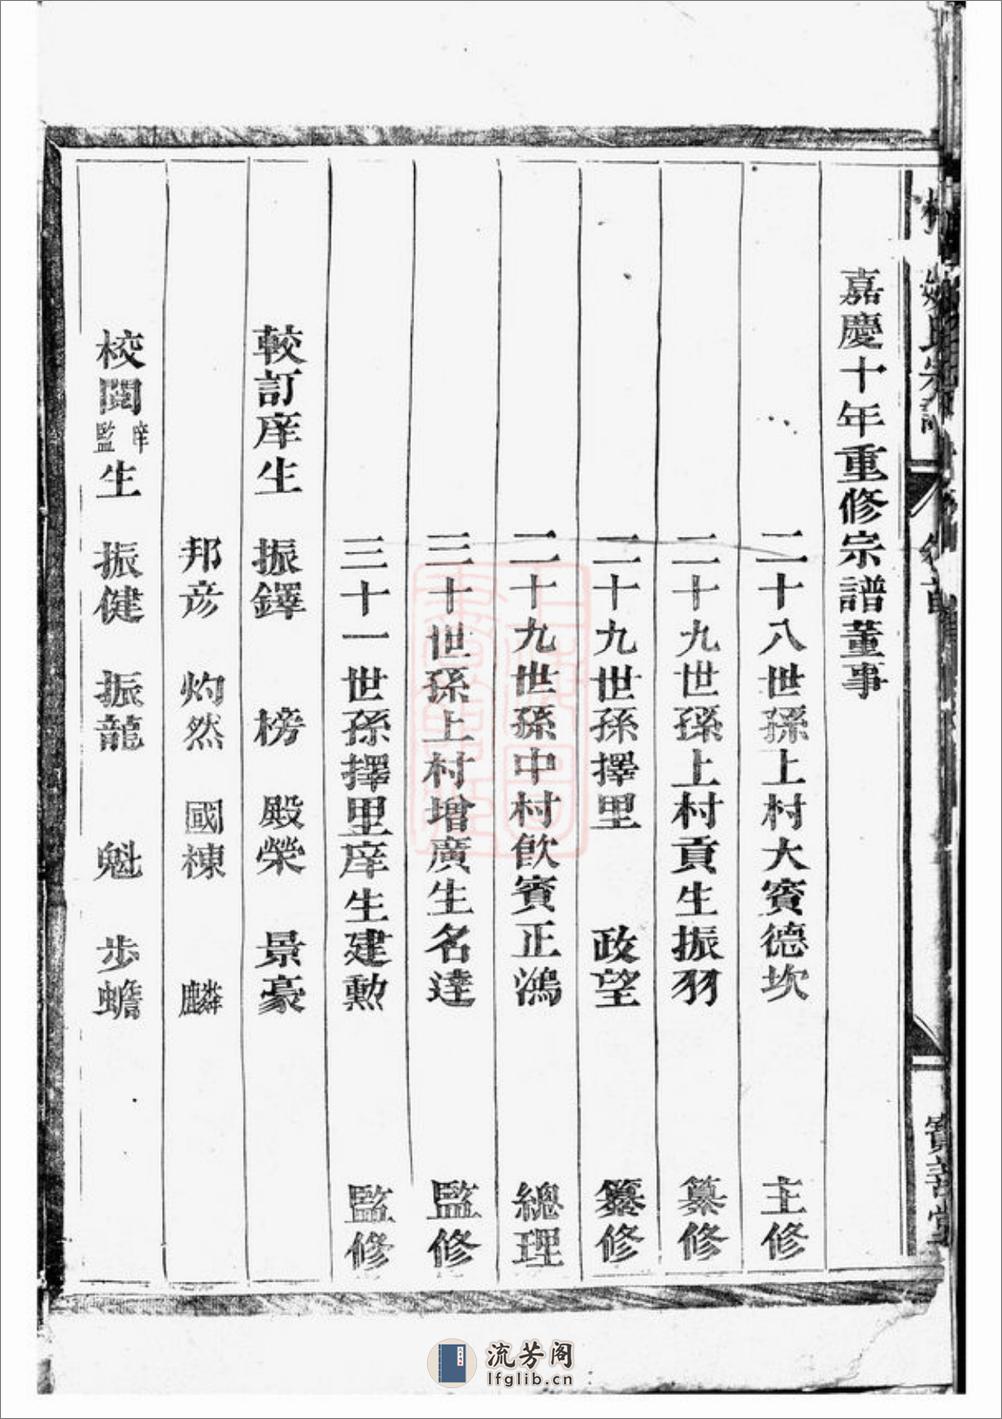 嘉慶十年重修宗譜董事
二十八世孫上村大賓德坎 主修
二十九世孫上村貢生振羽 纂修
二十九世孫擇里 政望 纂修
二十九世孫中村飲賓正鴻 總理
三十世孫上村增廣生名達 監修
三十一世孫擇里庠生建勲 監修
較訂庠生 振鐸 榜 殿榮 景豪
邦彦 灼然 國棟 麟
校閱庠監生 振健 振龍 魁 步蟾
氏宗譜
卷首
寶善堂
流芳阁
lfglib.cn